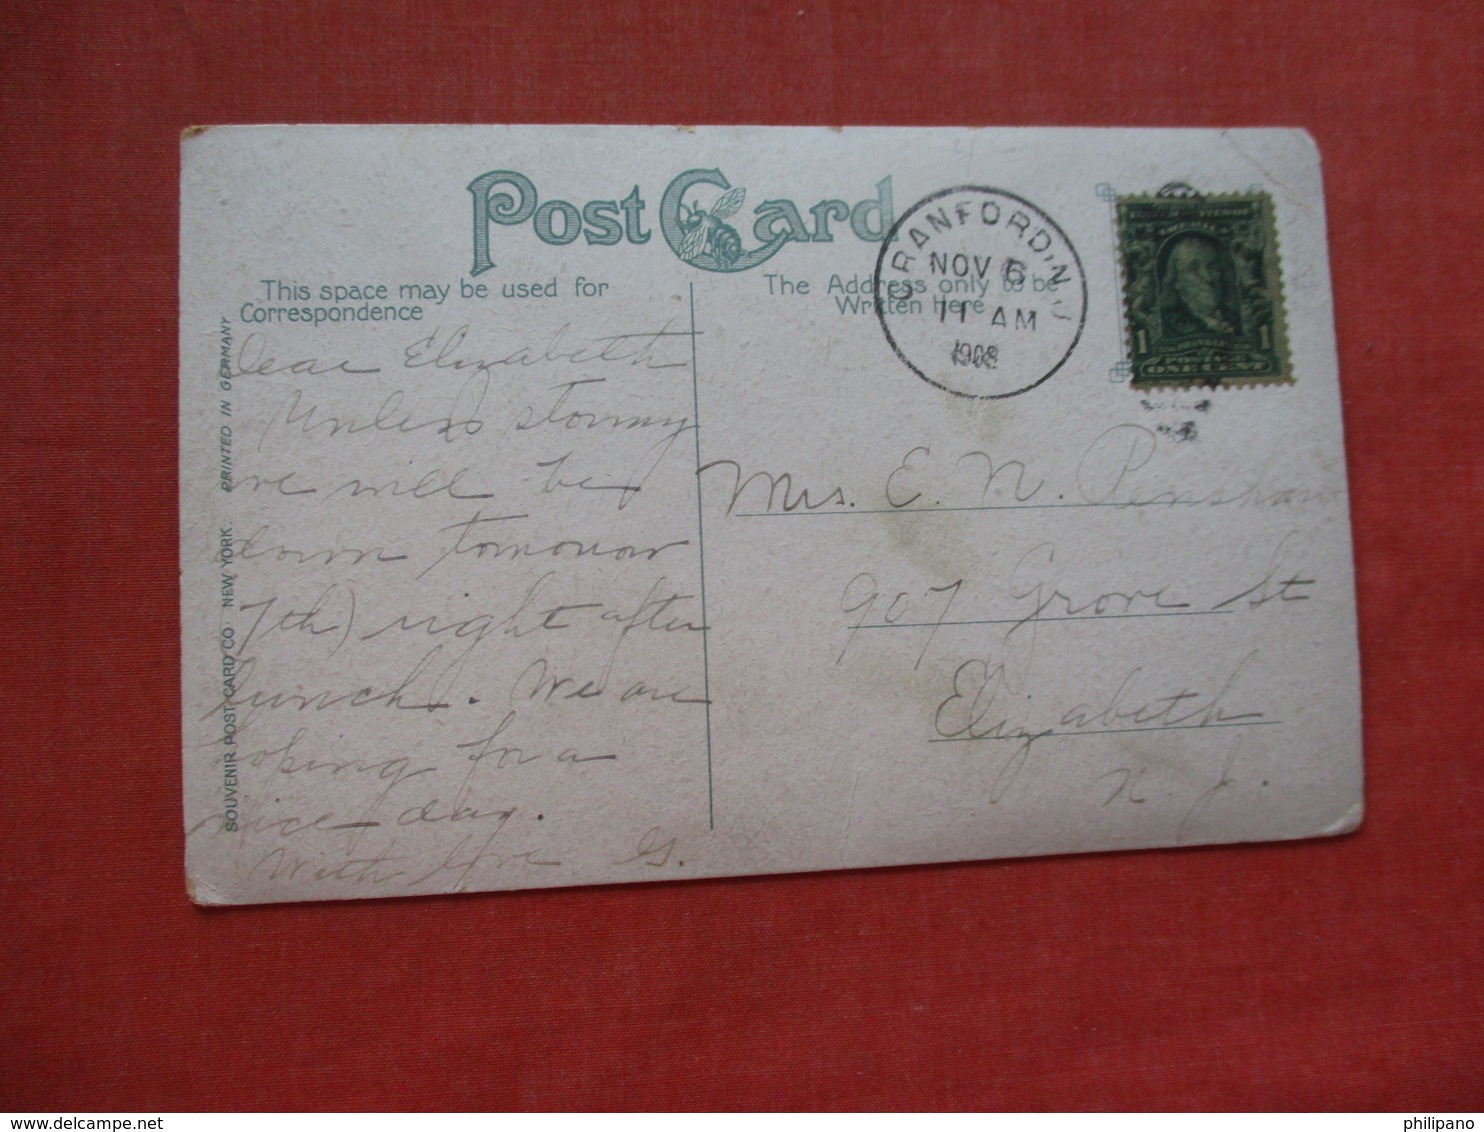 Post Card
This space may be used for
Correspondence
The Address only to be
Written Here
CRANFORD, N.J.
NOV 6
11 AM
1908
1 1
POSTAGE
ONE CENT
SOUVENIR POST CARD CO. NEW YORK. PRINTED IN GERMANY
Dear Elizabeth
Unless stormy
we will be
down tomorrow
7th) right after
lunch. We are
hoping for a
nice day.
With love G.
Mrs. E. N. Penshaw
907 Grove St
Elizabeth
N. J.
delcampe.net
philipano